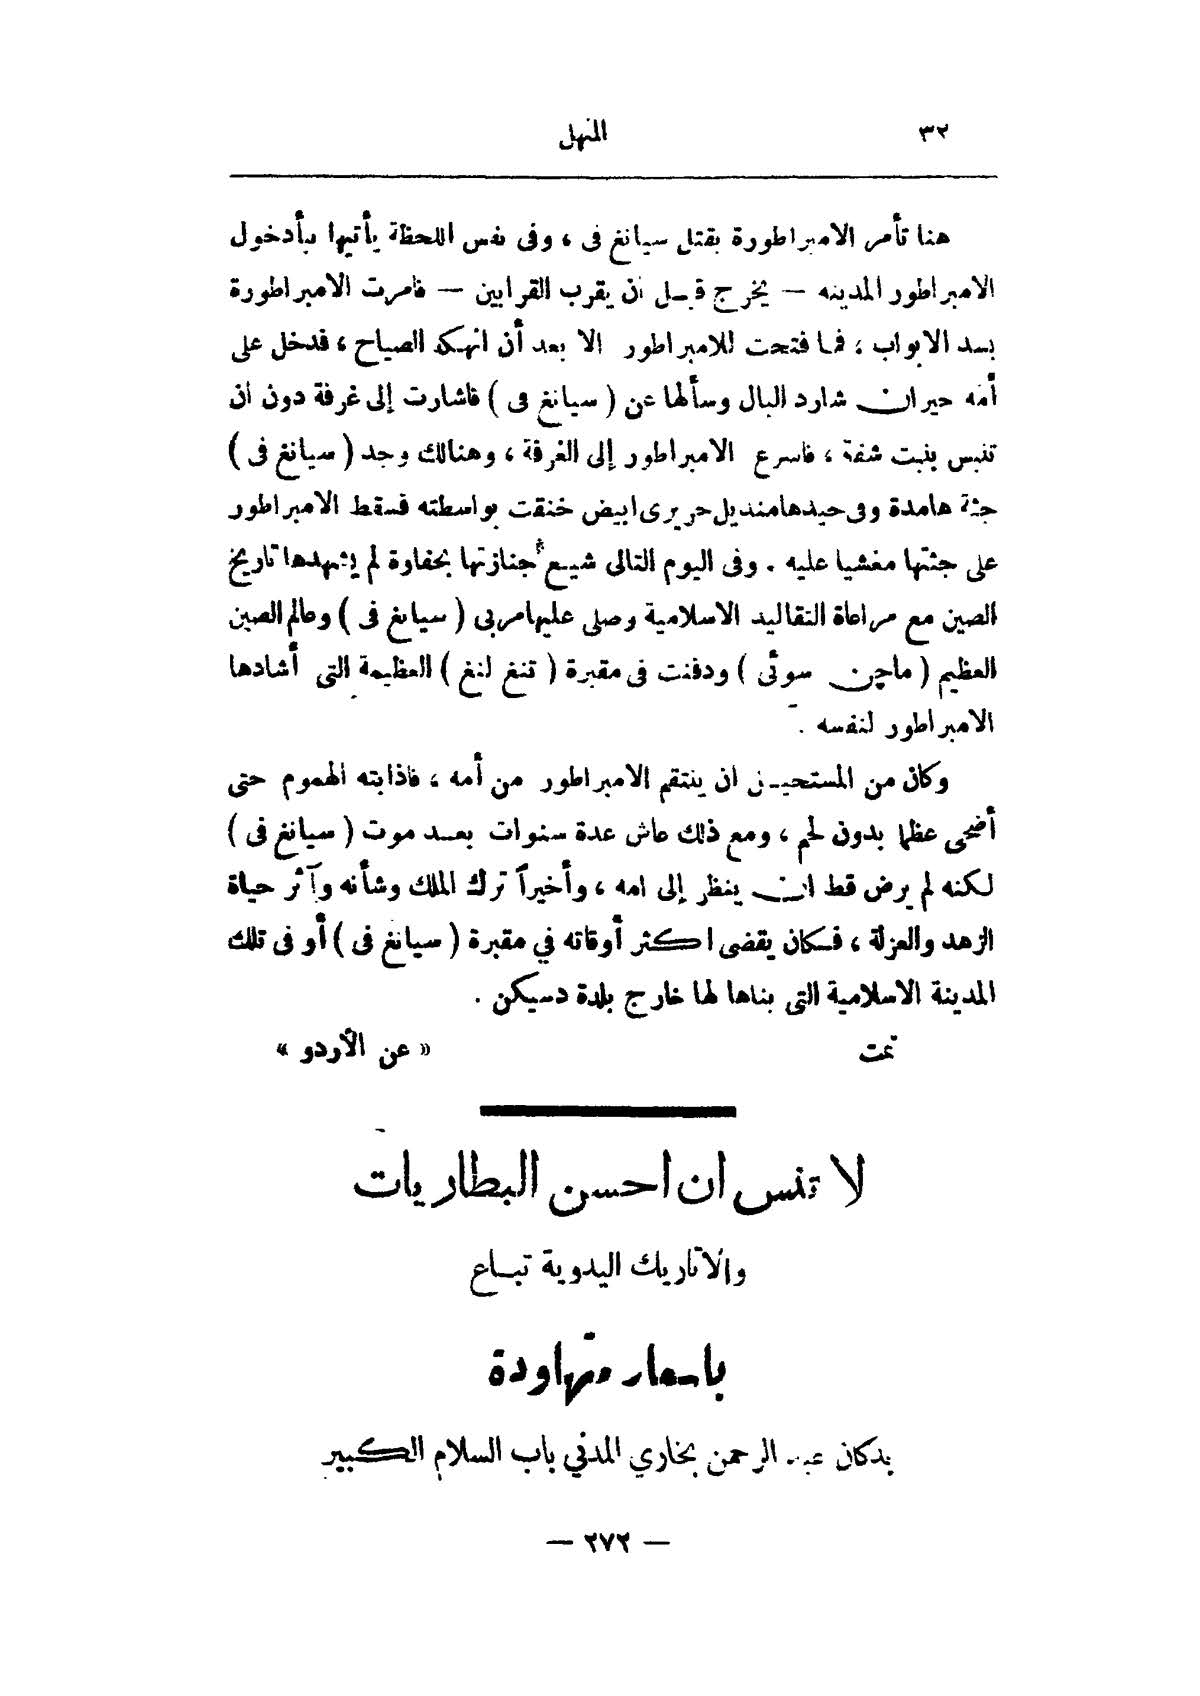 ٣٢ المنهل
هنا تأمر الامبراطورة بقتل سيانغ فى ، وفى نفس اللحظة يأتيها نبأدخول
الامبراطور المدينه — يخرج قبل ان يقرب القرايين — فامرت الامبراطورة
بسد الابواب ، فما فتحت للامبراطور الا بعد أن انهكه الصياح ، فدخل على
أمه حيران شارد البال وسألها عن ( سيانغ فى ) فاشارت إلى غرفة دون ان
تنبس ببنت شفة ، فاسرع الامبراطور إلى الغرفة ، وهنالك وجد ( سيانغ فى )
جثة هامدة وفى جيدهامنديل حريرى ابيض خنقت بواسطته فسقط الامبراطور
على جثتها مغشيا عليه . وفى اليوم التالى شيع جنازتها بحفاوة لم يشهدها تاريخ
الصين مع مراعاة التقاليد الاسلامية وصلى عليهامربى ( سيانغ فى ) وعالم الصين
العظيم ( ماچن سوئى ) ودفنت فى مقبرة ( تنغ لنغ ) العظيمة التى أشادها
الامبراطور لنفسه .
وكان من المستحيل ان ينتقم الامبراطور من أمه ، فاذابته الهموم حتى
أضحى عظما بدون لحم ، ومع ذلك عاش عدة سنوات بعد موت ( سيانغ فى )
لكنه لم يرض قط ان ينظر إلى امه ، وأخيراً ترك الملك وشأنه وآثر حياة
الزهد والعزلة ، فكان يقضى اكثر أوقاته في مقبرة ( سيانغ فى ) أو فى تلك
المدينة الاسلامية التى بناها لها خارج بلدة دسيكن .
تمت « عن الأردو »
لا تنس ان احسن البطاريات
والاتاريك اليدوية تباع
باسعار متهاودة
بدكان عبد الرحمن بخاري المدني باب السلام الكبير
— ٢٧٢ —